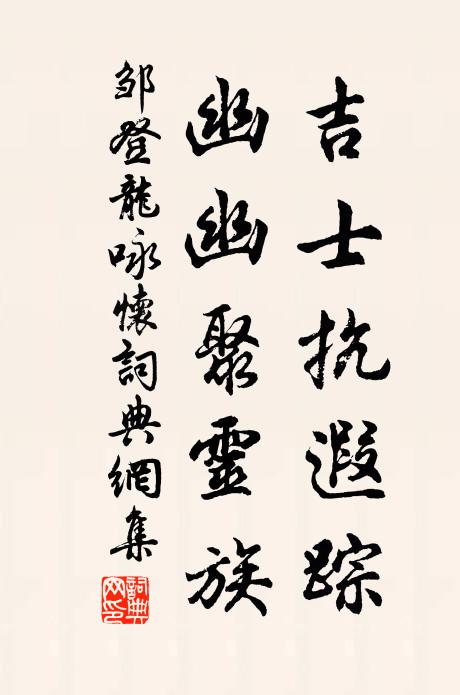 吉士抗遐踪
幽幽聚靈族
邹登龍咏懷詞典網集
詞典網印